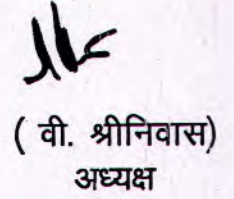 ( वी. श्रीनिवास)
अध्यक्ष